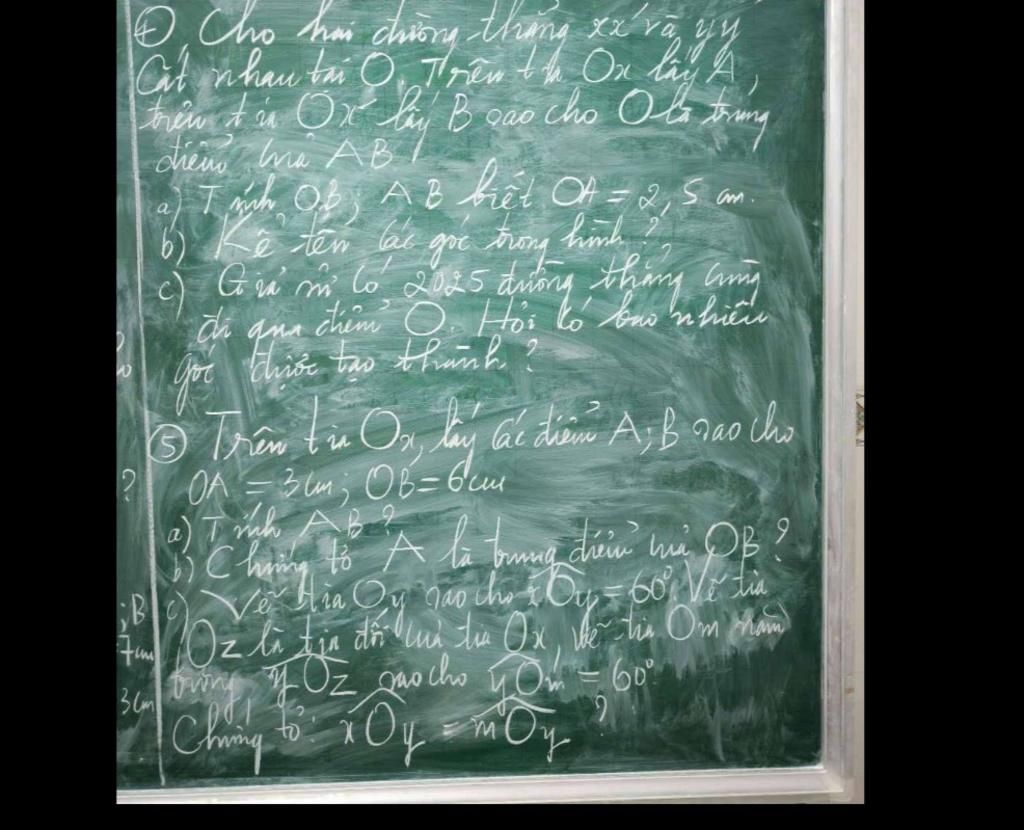 ④ Cho hai đường thẳng xx' và yy'
Cắt nhau tại O. Trên tia Ox lấy A,
trên tia Ox' lấy B sao cho O là trung
điểm của AB
a) Tính OB; AB biết OA = 2,5 cm.
b) Kể tên các góc trong hình?
c) Giả sử có 2025 đường thẳng cùng
đi qua điểm O. Hỏi có bao nhiêu
góc được tạo thành?
⑤ Trên tia Ox, lấy các điểm A; B sao cho
?
OA = 3cm; OB = 6cm
a) Tính AB?
b) Chứng tỏ A là trung điểm của OB?
c) Vẽ tia Oy sao cho xOy = 60°. Vẽ tia
;B
Oz là tia đối của tia Ox, vẽ tia Om nằm
7cm
trong yOz sao cho yOm = 60°
3cm
Chứng tỏ: xOy = mOy ?